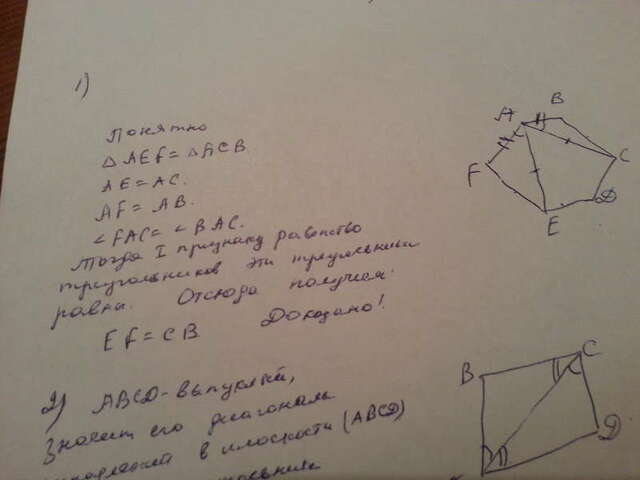 1)
Понятно
△AEF = △ACB.
AE = AC.
AF = AB.
∠FAC = ∠BAC.
Тогда I признаку равенства
треугольников эти треугольники
равны. Отсюда получаем:
EF = CB Доказано!
A
B
C
D
E
F
2) ABCD - выпуклый,
Значит его диагональ
в плоскости (ABCD)
B
C
D